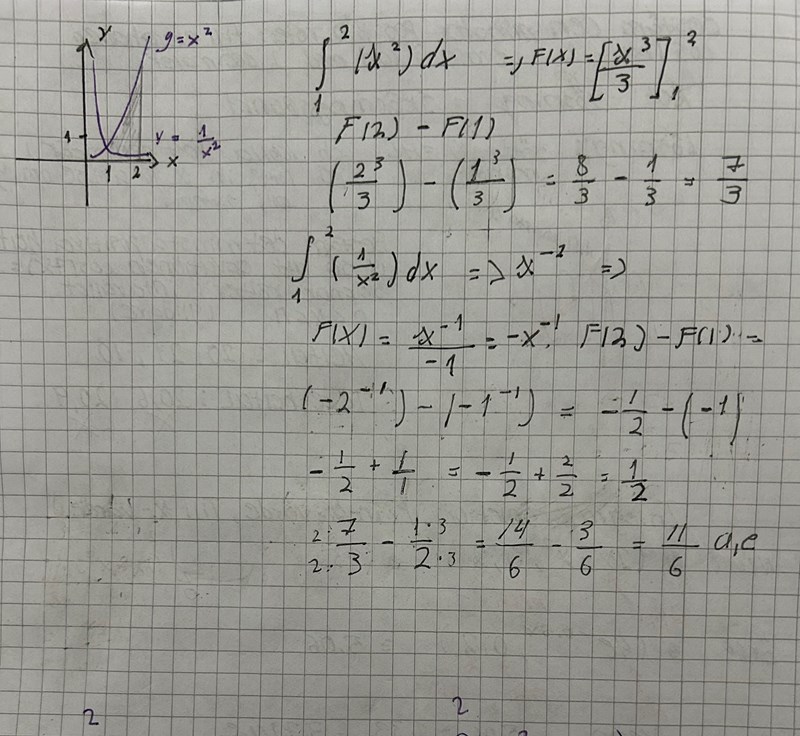 y
y = x²
1
y = 1/x²
x
1 2
∫₁² (x²) dx => F(x) = [x³/3]₁²
F(2) - F(1)
(2³/3) - (1³/3) = 8/3 - 1/3 = 7/3
∫₁² (1/x²) dx => x⁻² =>
F(x) = x⁻¹/-1 = -x⁻¹ F(2) - F(1) =
(-2⁻¹) - (-1⁻¹) = -1/2 - (-1)
-1/2 + 1/1 = -1/2 + 2/2 = 1/2
2·7/2·3 - 1·3/2·3 = 14/6 - 3/6 = 11/6 a,e
2 2